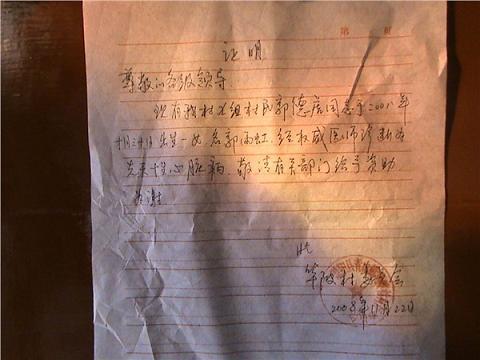 第 页
证明
尊敬的各级领导
现有我村 组村民郭德 同志于2001年
十月三十日出生一女名郭雨虹,经权威医师诊断为
先天性心脏病,敬请有关部门给予资助
为谢
此
村委会
2008年11月22日